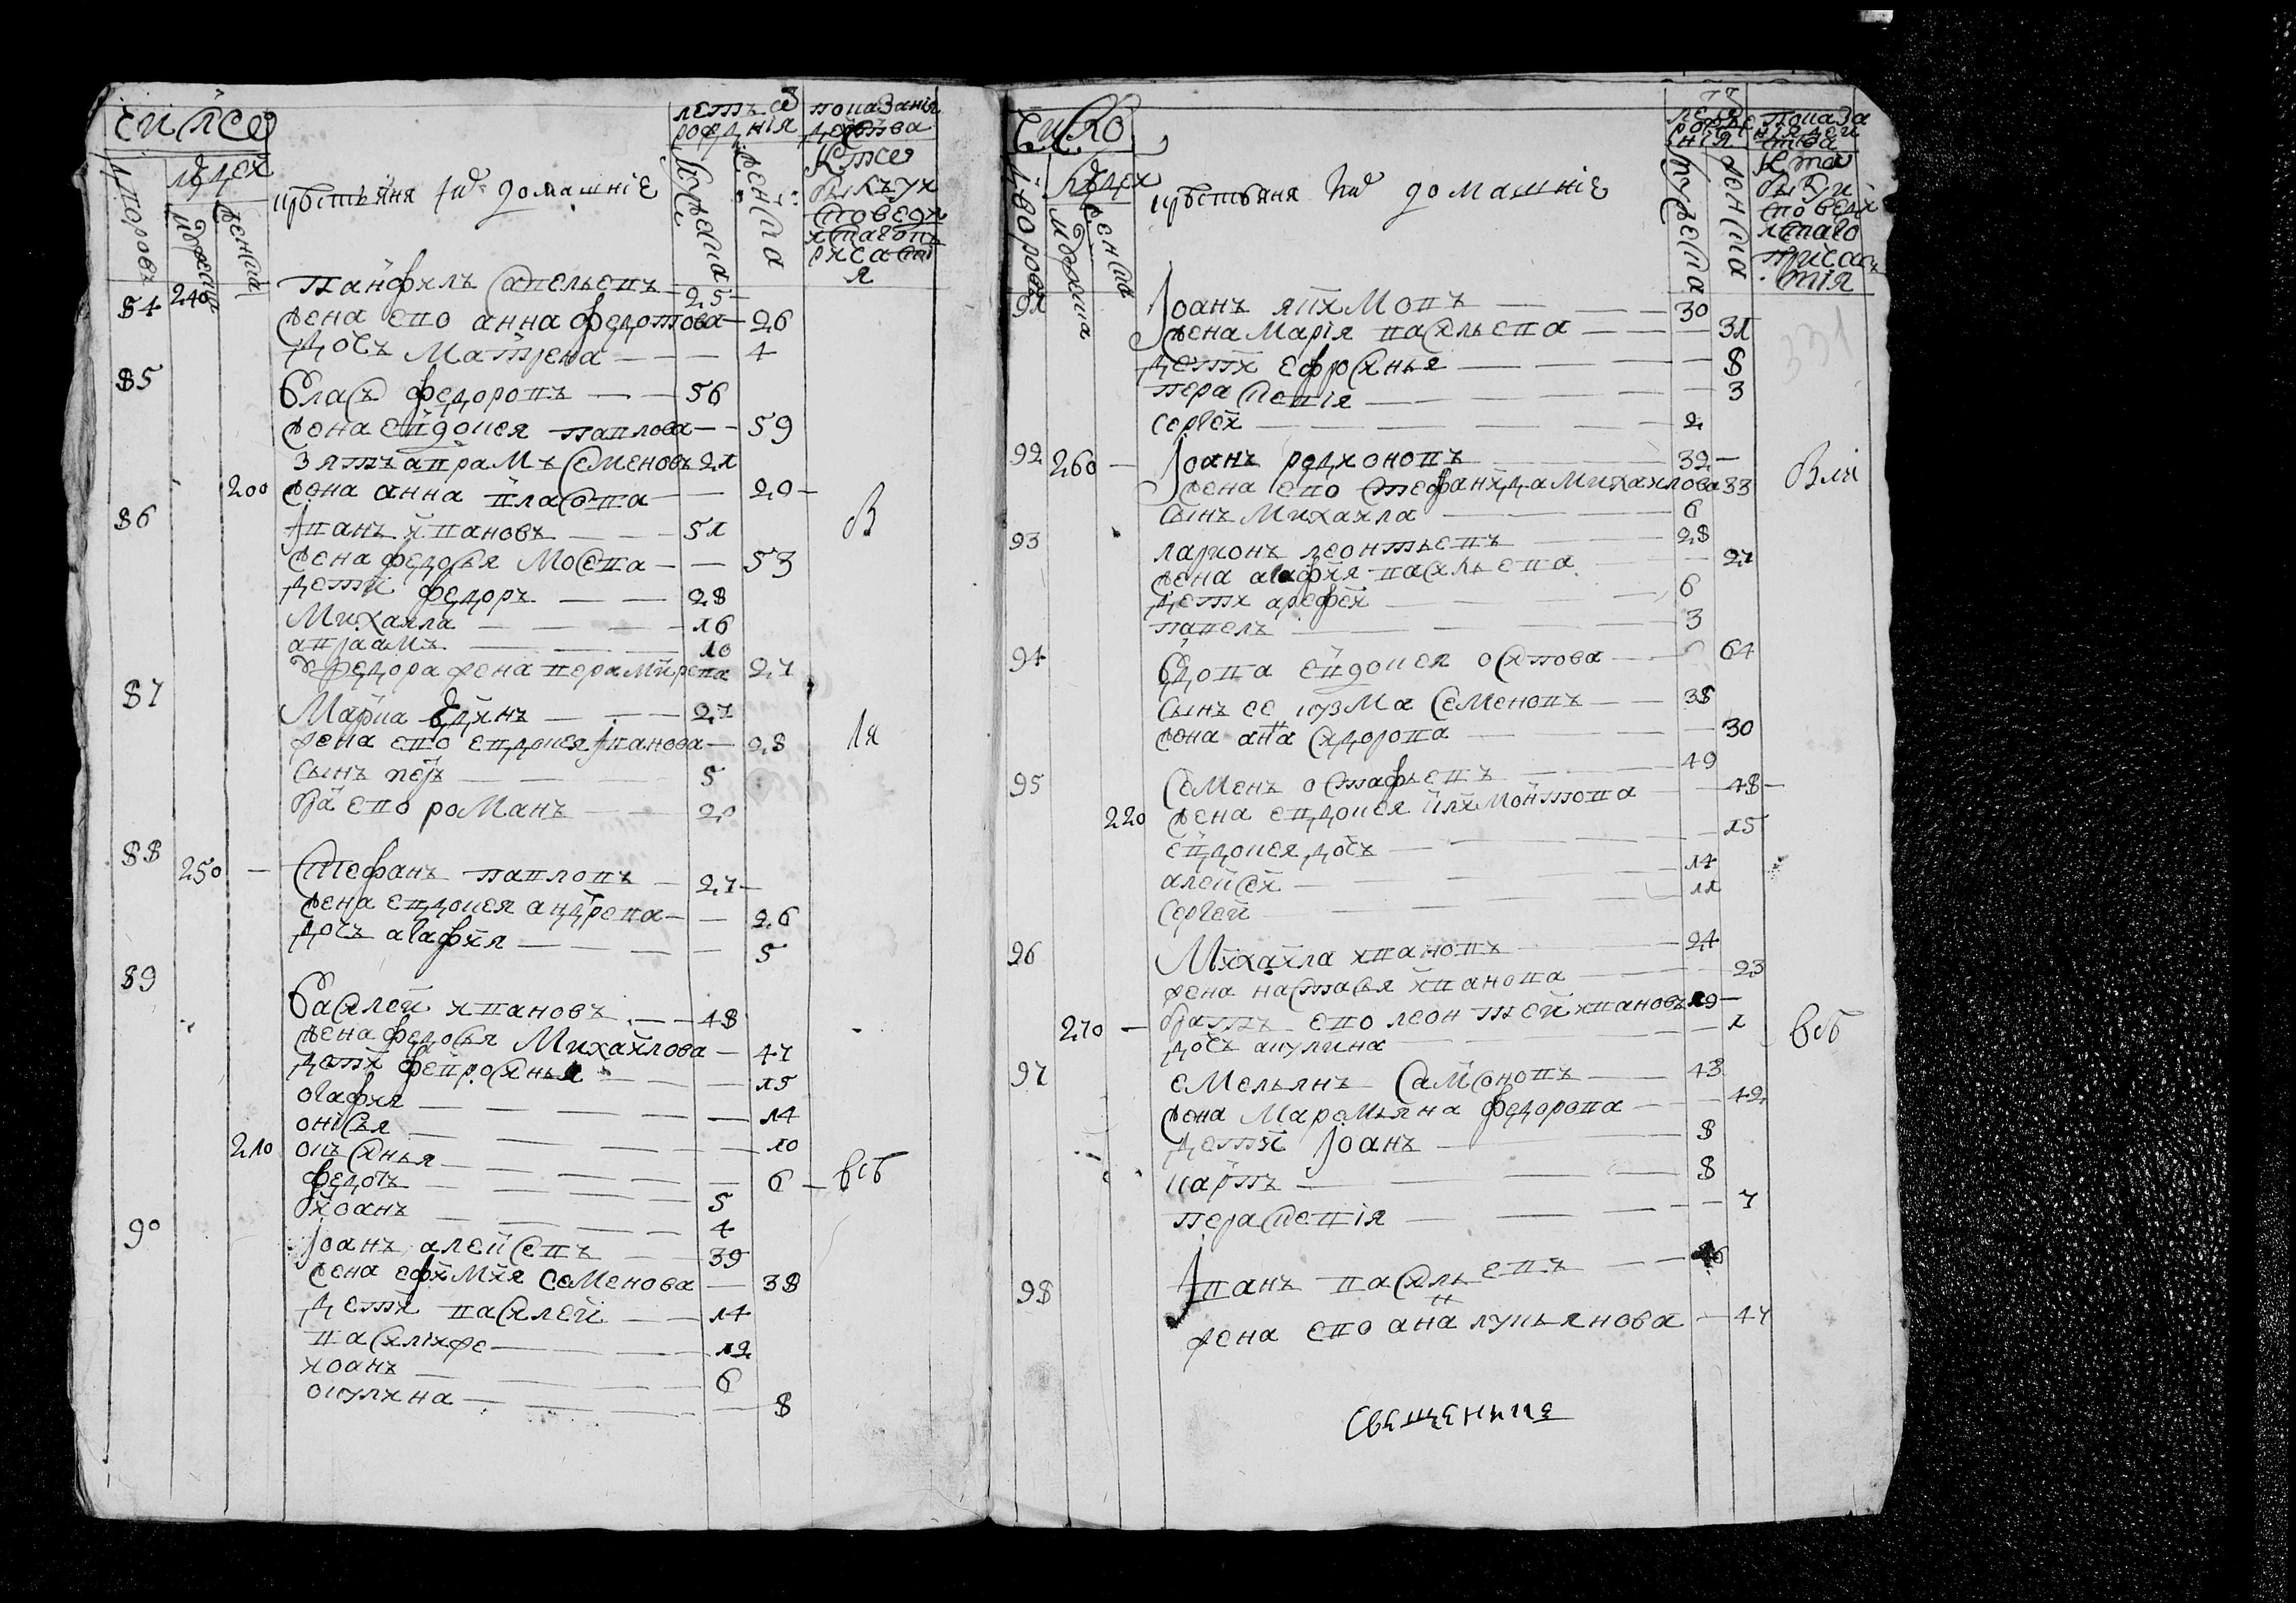 число
дворовъ
людех
мужеска
женска
крестьяня и их домашніе
летъ от рождения
мужеска
женска
показанія действа
Кто
был у
исповеди
84 240 Панфилъ савельевъ 25
жена ево анна федотова 26
дочь Матрена 4
85
Власъ федоровъ 56
жена евдокея павлова 59
зять авраамъ семеновъ 21
200 жена анна власова 20
86 В
Иванъ ивановъ 51
жена федосья Мосева 53
дети федоръ 28
Михаила 16
авраамъ 10
у федора жена вера 27
87
27
жена ево евдокея иванова 28 ля
сынъ петръ 5
братъ ево романъ 20
88 250 Стефанъ павловъ 27
жена евдокея андрева 26
дочь агафия 5
89
Василеи ивановъ 48
жена федосья Михаилова 47
дети 15
огафия 14
онисья 10
210 оксинья 6 всѣ
федотъ 5
иоанъ 4
90
Iоанъ алексевъ 39
жена ефимия семенова 38
дети василеи 14
василиже 12
иоанъ 6
окулина 8
число
дворовъ
людех
мужеска
женска
крестьяня и их домашніе
мужеска
женска
91 Iоанъ 30
жена Марія васильева 31
дети ефросинья 8
парасковія 3
сергеи 2
92 260 Iоанъ родионовъ 32
жена ево стефанида Михаилова 33
сынъ Михаила 6
93 ларионъ леонтьевъ 28
жена агафия васильева 27
дети арефеи 6
павелъ 3
94 вдова евдокея осипова 64
сынъ ее кузма семеновъ 38
жена анна сидорова 30
95 семенъ остафьевъ 49
220 жена евдокея 48
евдокея дочь 15
алексеи 14
сергеи 11
96 Михаила ивановъ 24
жена настасья иванова 23
братъ ево леонтеи ивановъ 19
270 дочь акулина 1 всѣ
97 емельянъ самсоновъ 43
жена Маремьяна федорова 42
дети Iоанъ 8
карпъ 8
парасковія 7
98 Iванъ васильевъ 46
жена ево анна лукьянова 47
священникъ
331